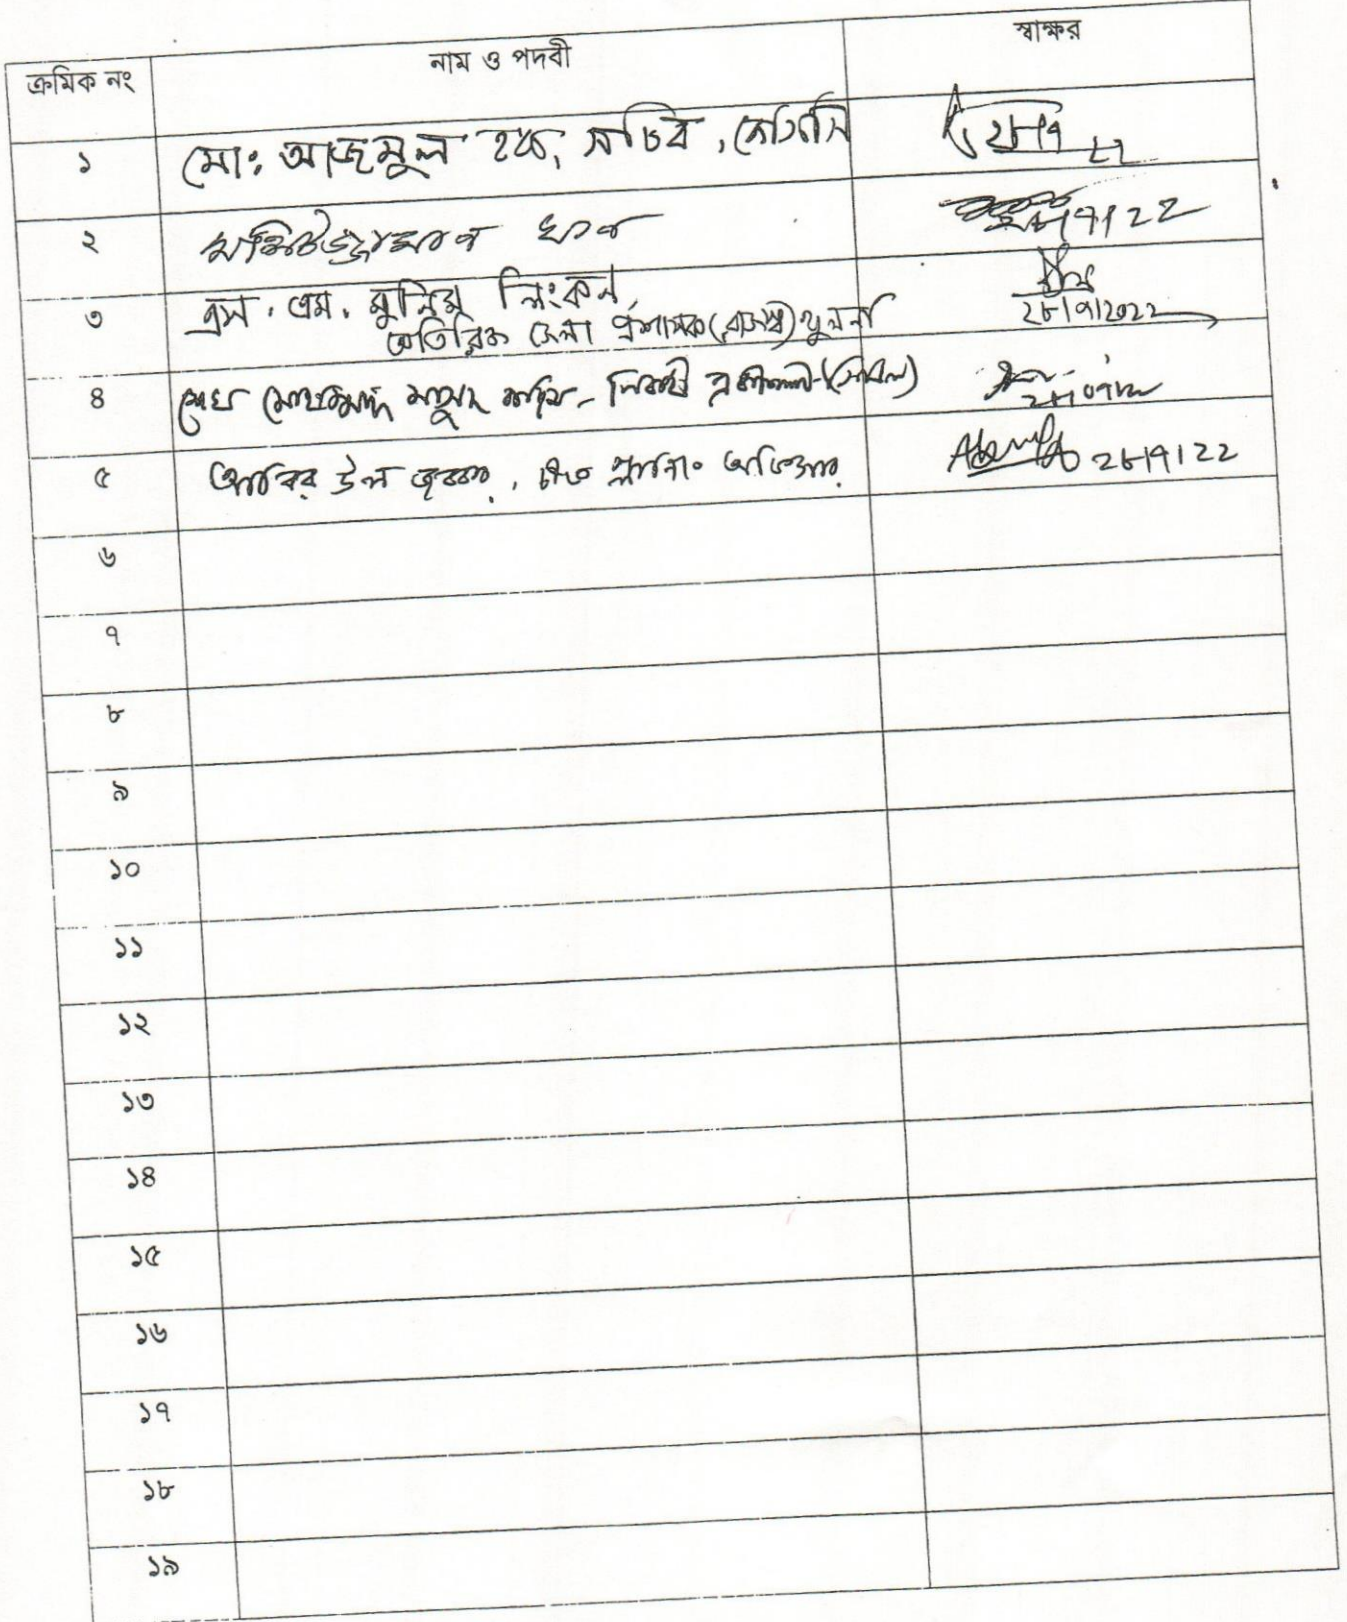 ক্রমিক নং নাম ও পদবী স্বাক্ষর
১ মোঃ আজমুল হক, সচিব, কেসিসি
২ খান
২৮/৭/২২
৩ এস. এম. মুনিম লিংকন,
অতিরিক্ত জেলা প্রশাসক (রাজস্ব) খুলনা
২৮/৭/২০২২
৪ শেখ মোহাম্মদ মাসুদ করিম - নির্বাহী প্রকৌশলী (সিভিল)
৫ আবির উল জব্বার, চীফ প্লানিং অফিসার ২৮/৭/২২
৬
৭
৮
৯
১০
১১
১২
১৩
১৪
১৫
১৬
১৭
১৮
১৯